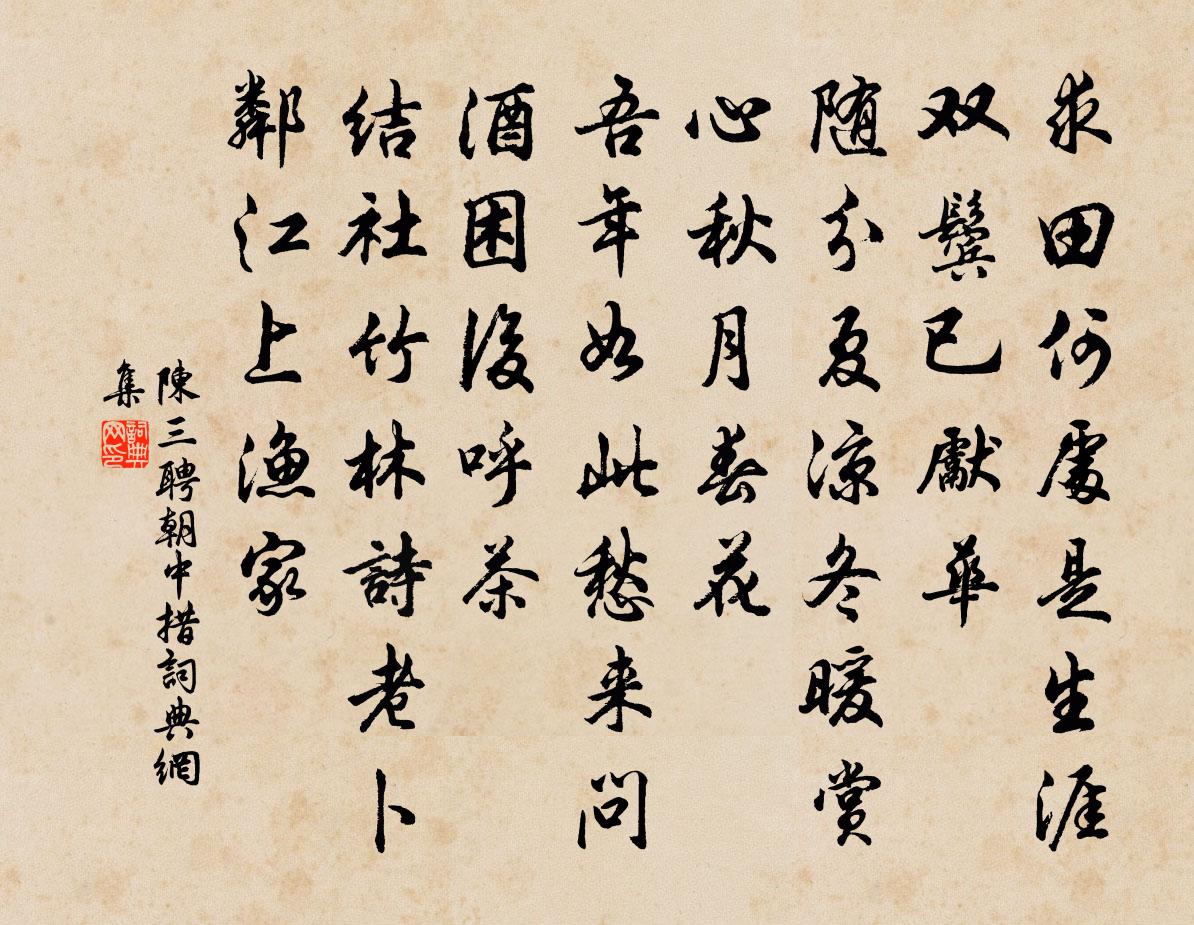 求田何處是生涯
双鬢已獻華
随分夏涼冬暖賞
心秋月春花
吾年如此愁来問
酒困後呼茶
結社竹林詩老卜
鄰江上漁家
陳三聘朝中措詞典網
集
詞典网印